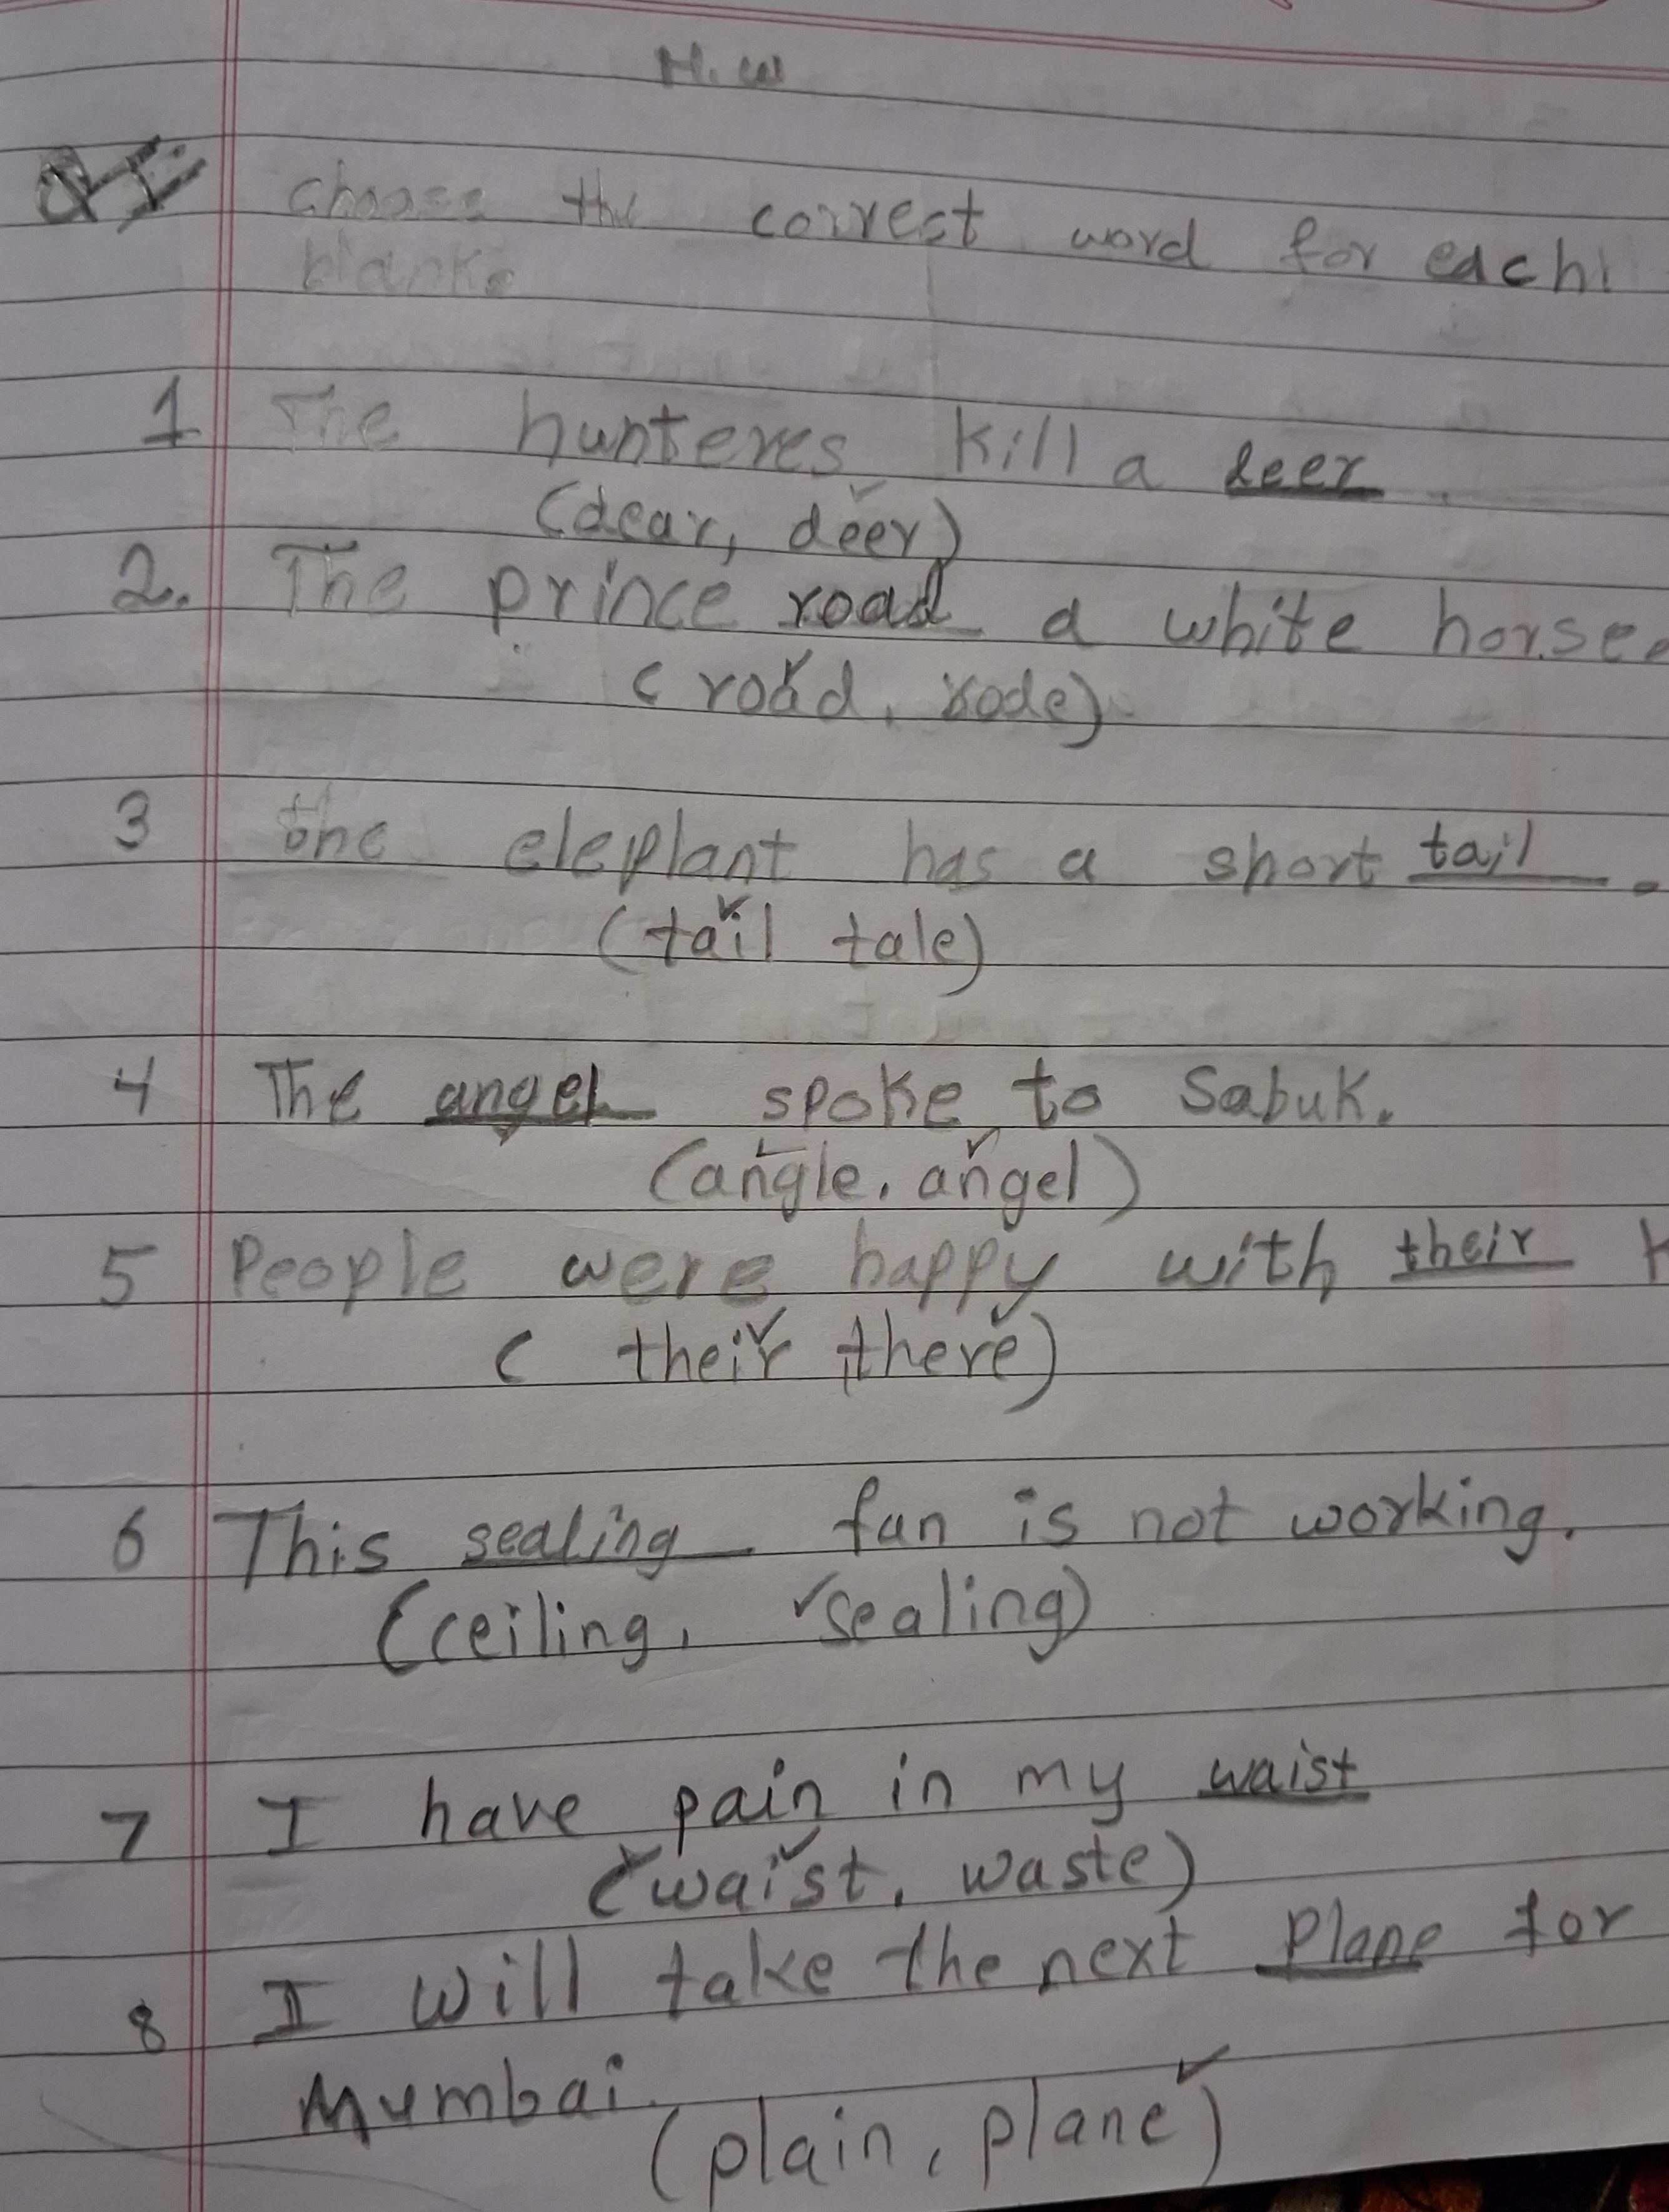 H.W
Q1: choose the correct word for each
blank.
1 The hunteres kill a deer.
(dear, deer)
2. The prince road a white horse.
(road, rode)
3 the eleplant has a short tail.
(tail tale)
4 The angel spoke to Sabuk.
(angle, angel)
5 People were happy with their
(their, there)
6 This sealing fan is not working.
(ceiling, sealing)
7 I have pain in my waist
(waist, waste)
8 I will take the next Plane for
Mumbai.
(plain, plane)